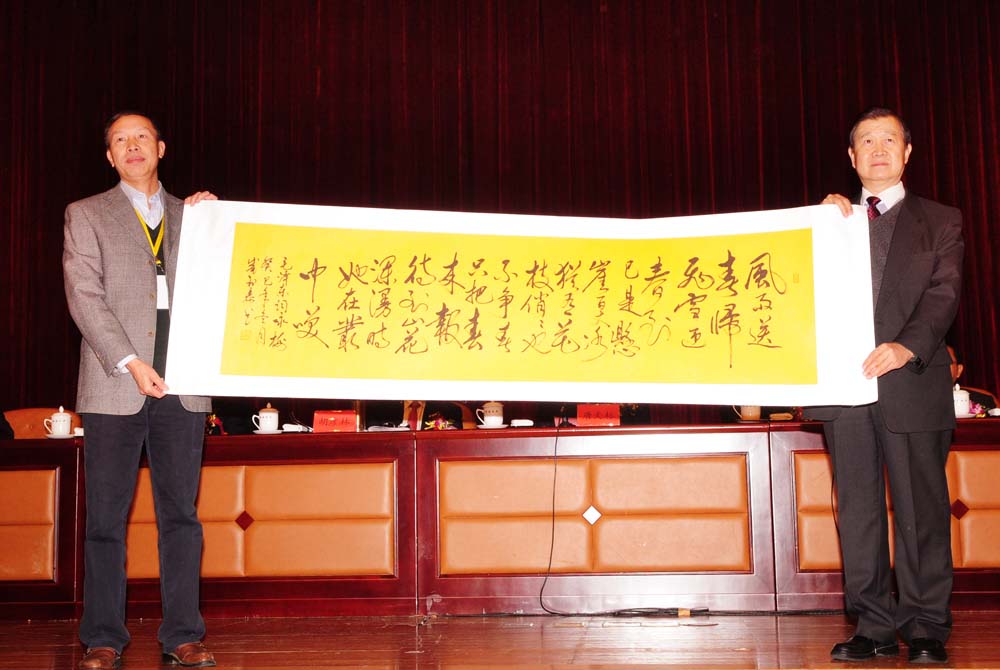 風雨送
春歸
飛雪迎
春到
已是懸
崖百丈冰
猶有花
枝俏〻也
不争春
只把春
来報
待到山花
漫時
她在叢
中笑
毛泽东词咏梅
癸巳年